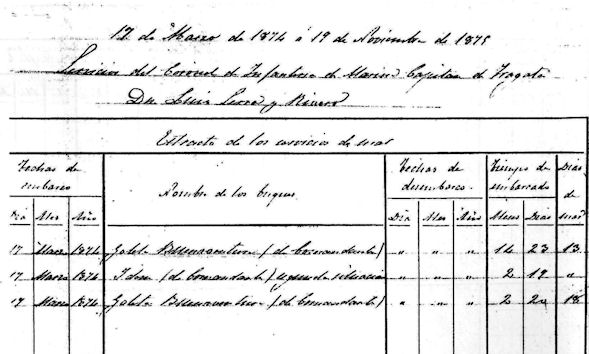 17 de Marzo de 1874 á 19 de Noviembre de 1875
Servicios del Coronel de Infanteria de Marina Capitan de Fragata
Dn. Luis y Rivero
Estracto de los servicios de mar
Fechas de embarco
Nombre de los buques
Fechas de desembarco
Tiempo de embarcado
Dias de mar
Dia Mes Año Dia Mes Año Meses Dias
17 Marzo 1874 Goleta Buenaventura (de Comandante) " " " 14 23 13
17 Marzo 1874 Idem (de Comandante) segunda situacion " " " 2 19 "
17 Marzo 1874 Goleta Buenaventura (de Comandante) " " " 2 18